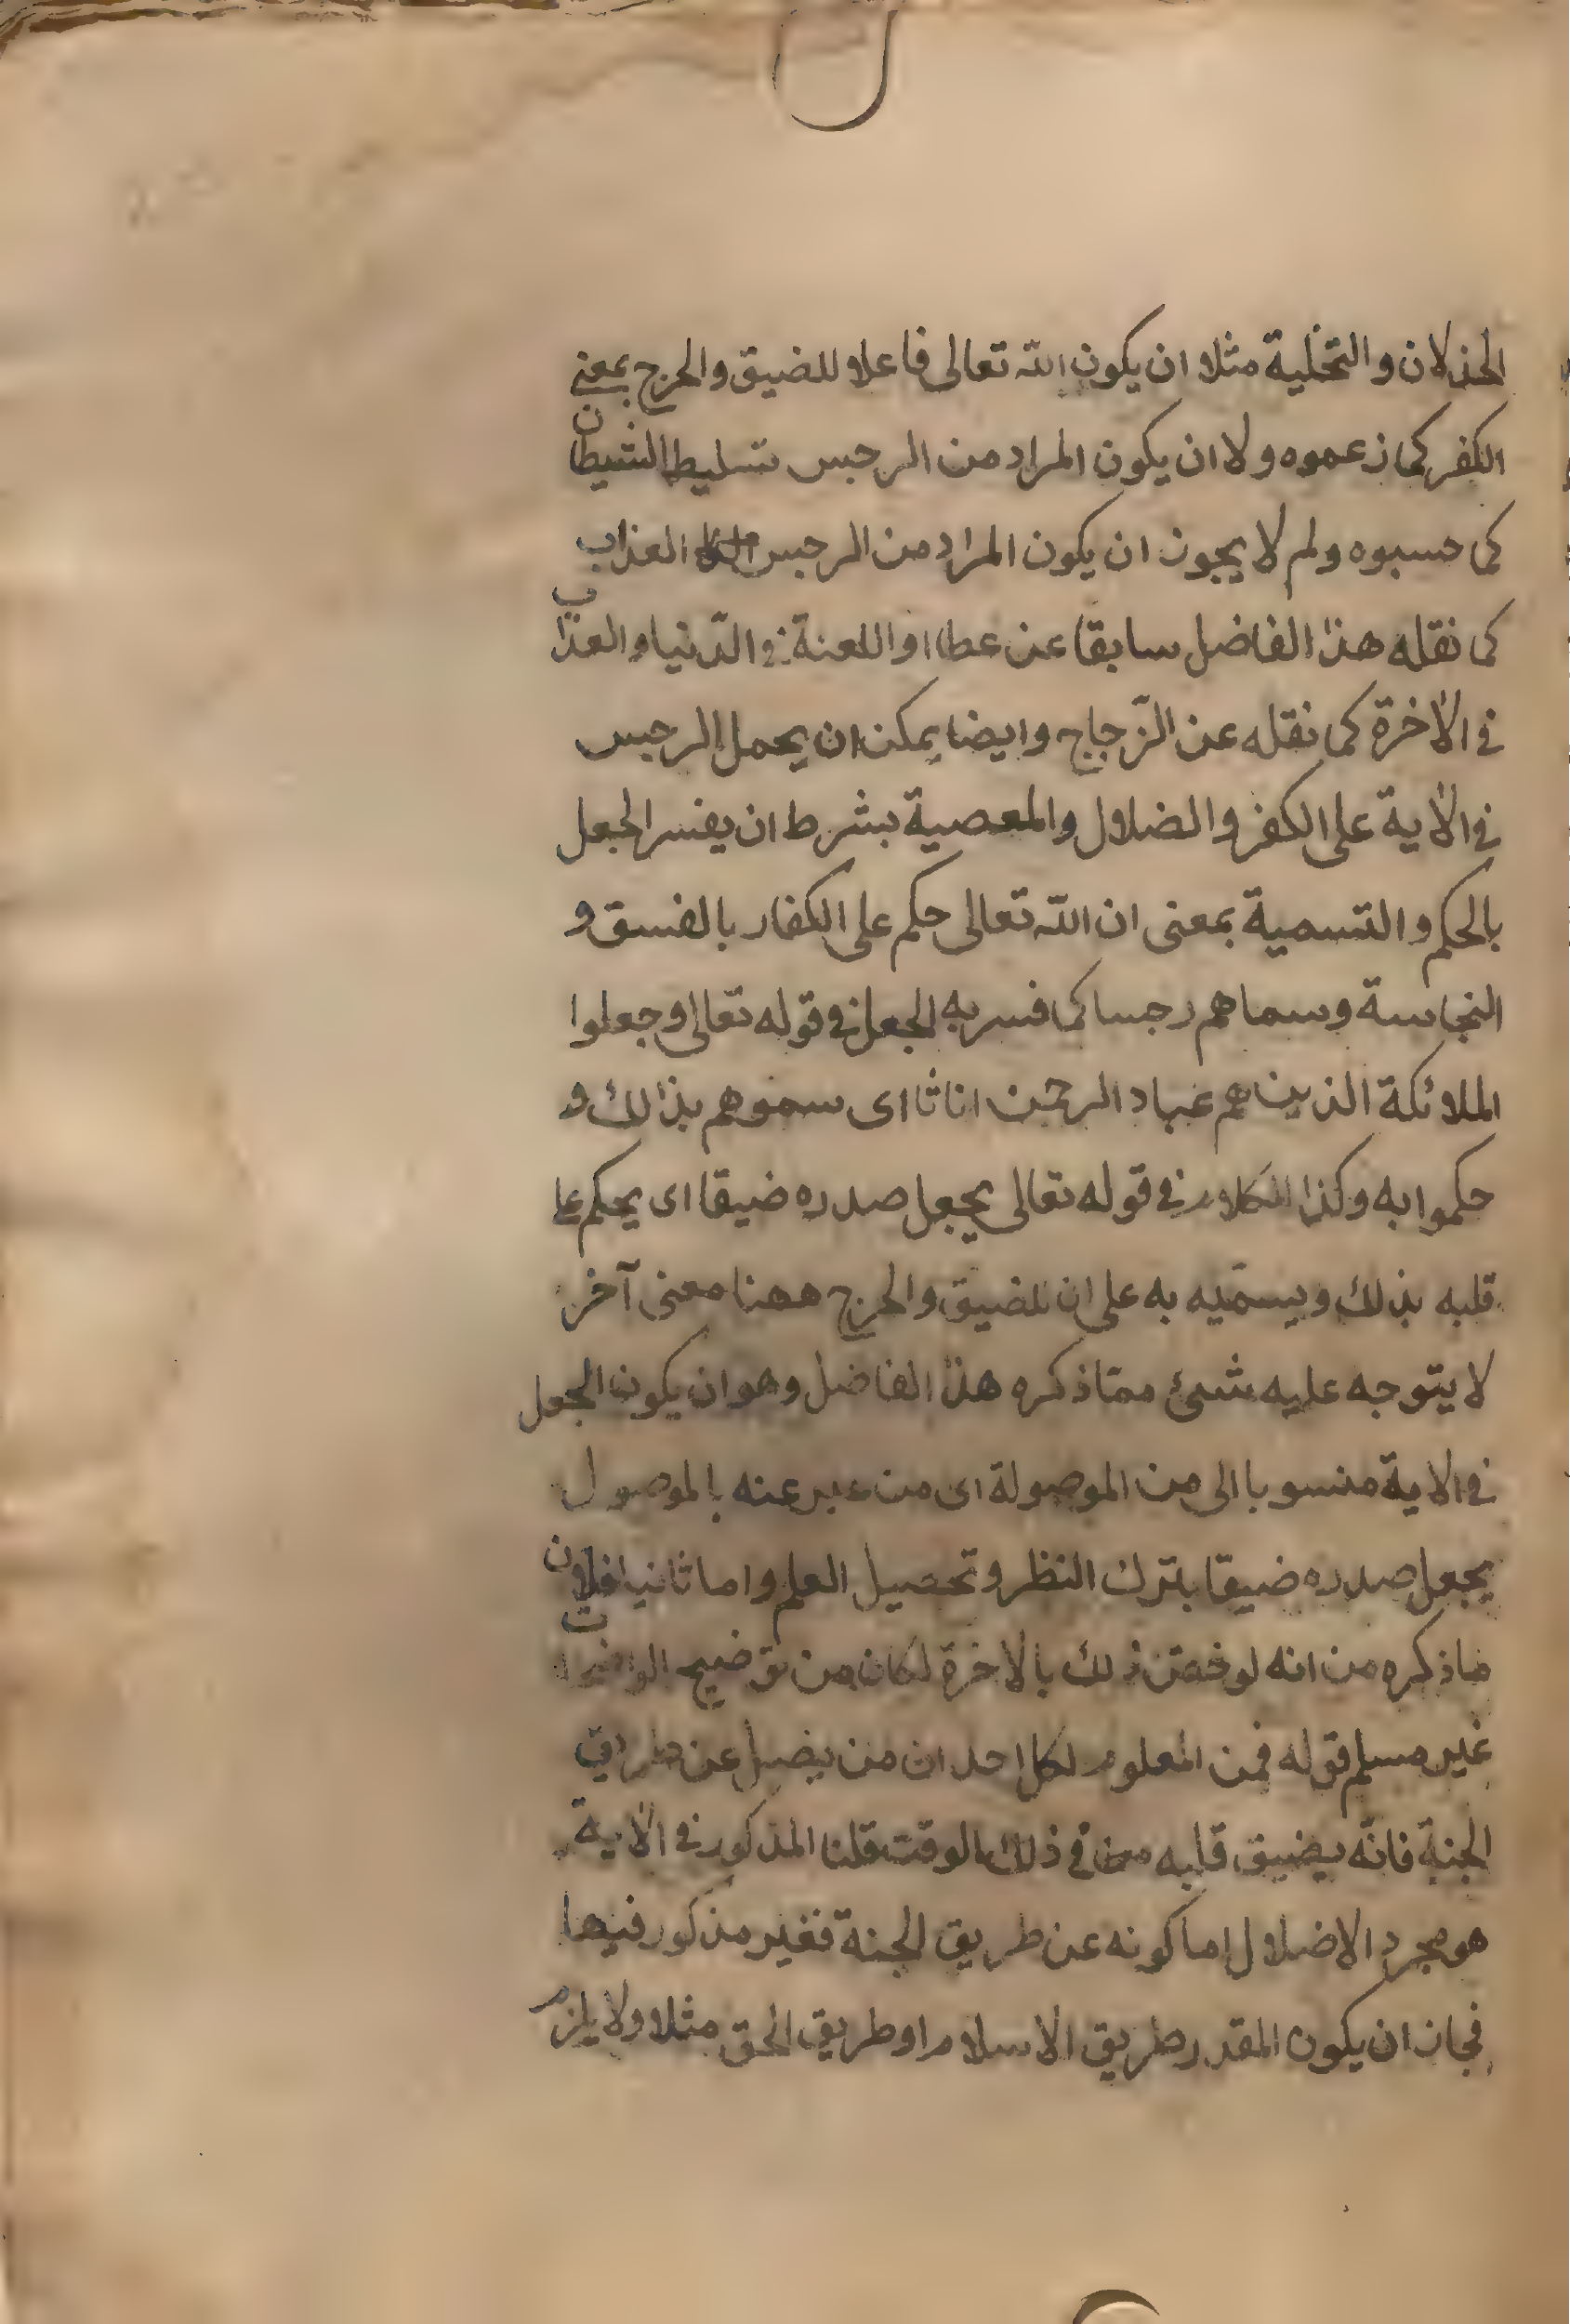 الخذلان والتخلية مثلا ان يكون الله تعالى فاعلا للضيق والحرج بمعنى
الكفر كما زعموه ولا ان يكون المراد من الرجس تسليط الشيطان
كما حسبوه ولم لا يجوز ان يكون المراد من الرجس العذاب
كما نقله هذا الفاضل سابقا عن عطا او اللعنة في الدّنيا والعذاب
في الاخرة كما نقله عن الزّجاج وايضا يمكن ان يحمل الرجس
في الاية على الكفر والضلال والمعصية بشرط ان يفسر الجعل
بالحكم والتسمية بمعنى ان الله تعالى حكم على الكفار بالفسق و
النجاسة وسماهم رجسا كما فسر به الجعل في قوله تعالى وجعلوا
الملائكة الذين هم عباد الرحمن اناثا اى سموهم بذالك و
حكموا به وكذا الكلام في قوله تعالى يجعل صدره ضيقا اى يحكم على
قلبه بذلك ويسمّيه به على ان للضيق والحرج ههنا معنى آخر
لا يتوجه عليه شئ ممّا ذكره هذا الفاضل وهو ان يكون الجعل
في الاية منسوبا الى من الموصولة اى من عبر عنه بالموصول
يجعل صدره ضيقا بترك النظر وتحصيل العلم واما ثانيا فلان
ما ذكره من انه لو خصّ ذلك بالاخرة لكان من توضيح الواضحات
غير مسلم قوله فمن المعلوم لكل احد ان من يضل عن طريق
الجنة فانّه يضيق قلبه في ذلك الوقت قلنا المذكور في الاية
هو مجرد الاضلال اما كونه عن طريق الجنة فغير مذكور فيها
فجاز ان يكون المقدر طريق الاسلام او طريق الحق مثلا ولا يلزم